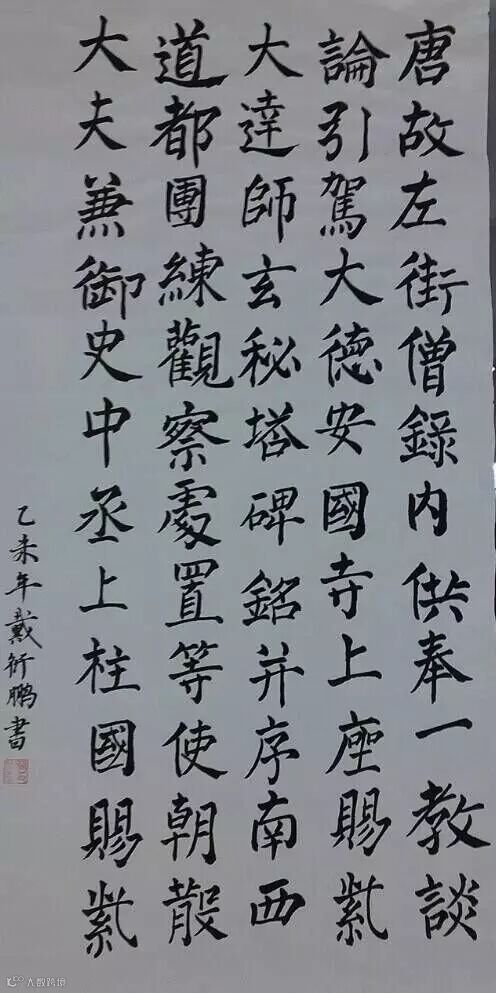 唐故左街僧錄内供奉一教談
論引駕大德安國寺上座賜紫
大達師玄秘塔碑銘并序南西
道都團練觀察處置等使朝散
大夫兼御史中丞上柱國賜紫
乙未年戴衍鵬書
大数跨境